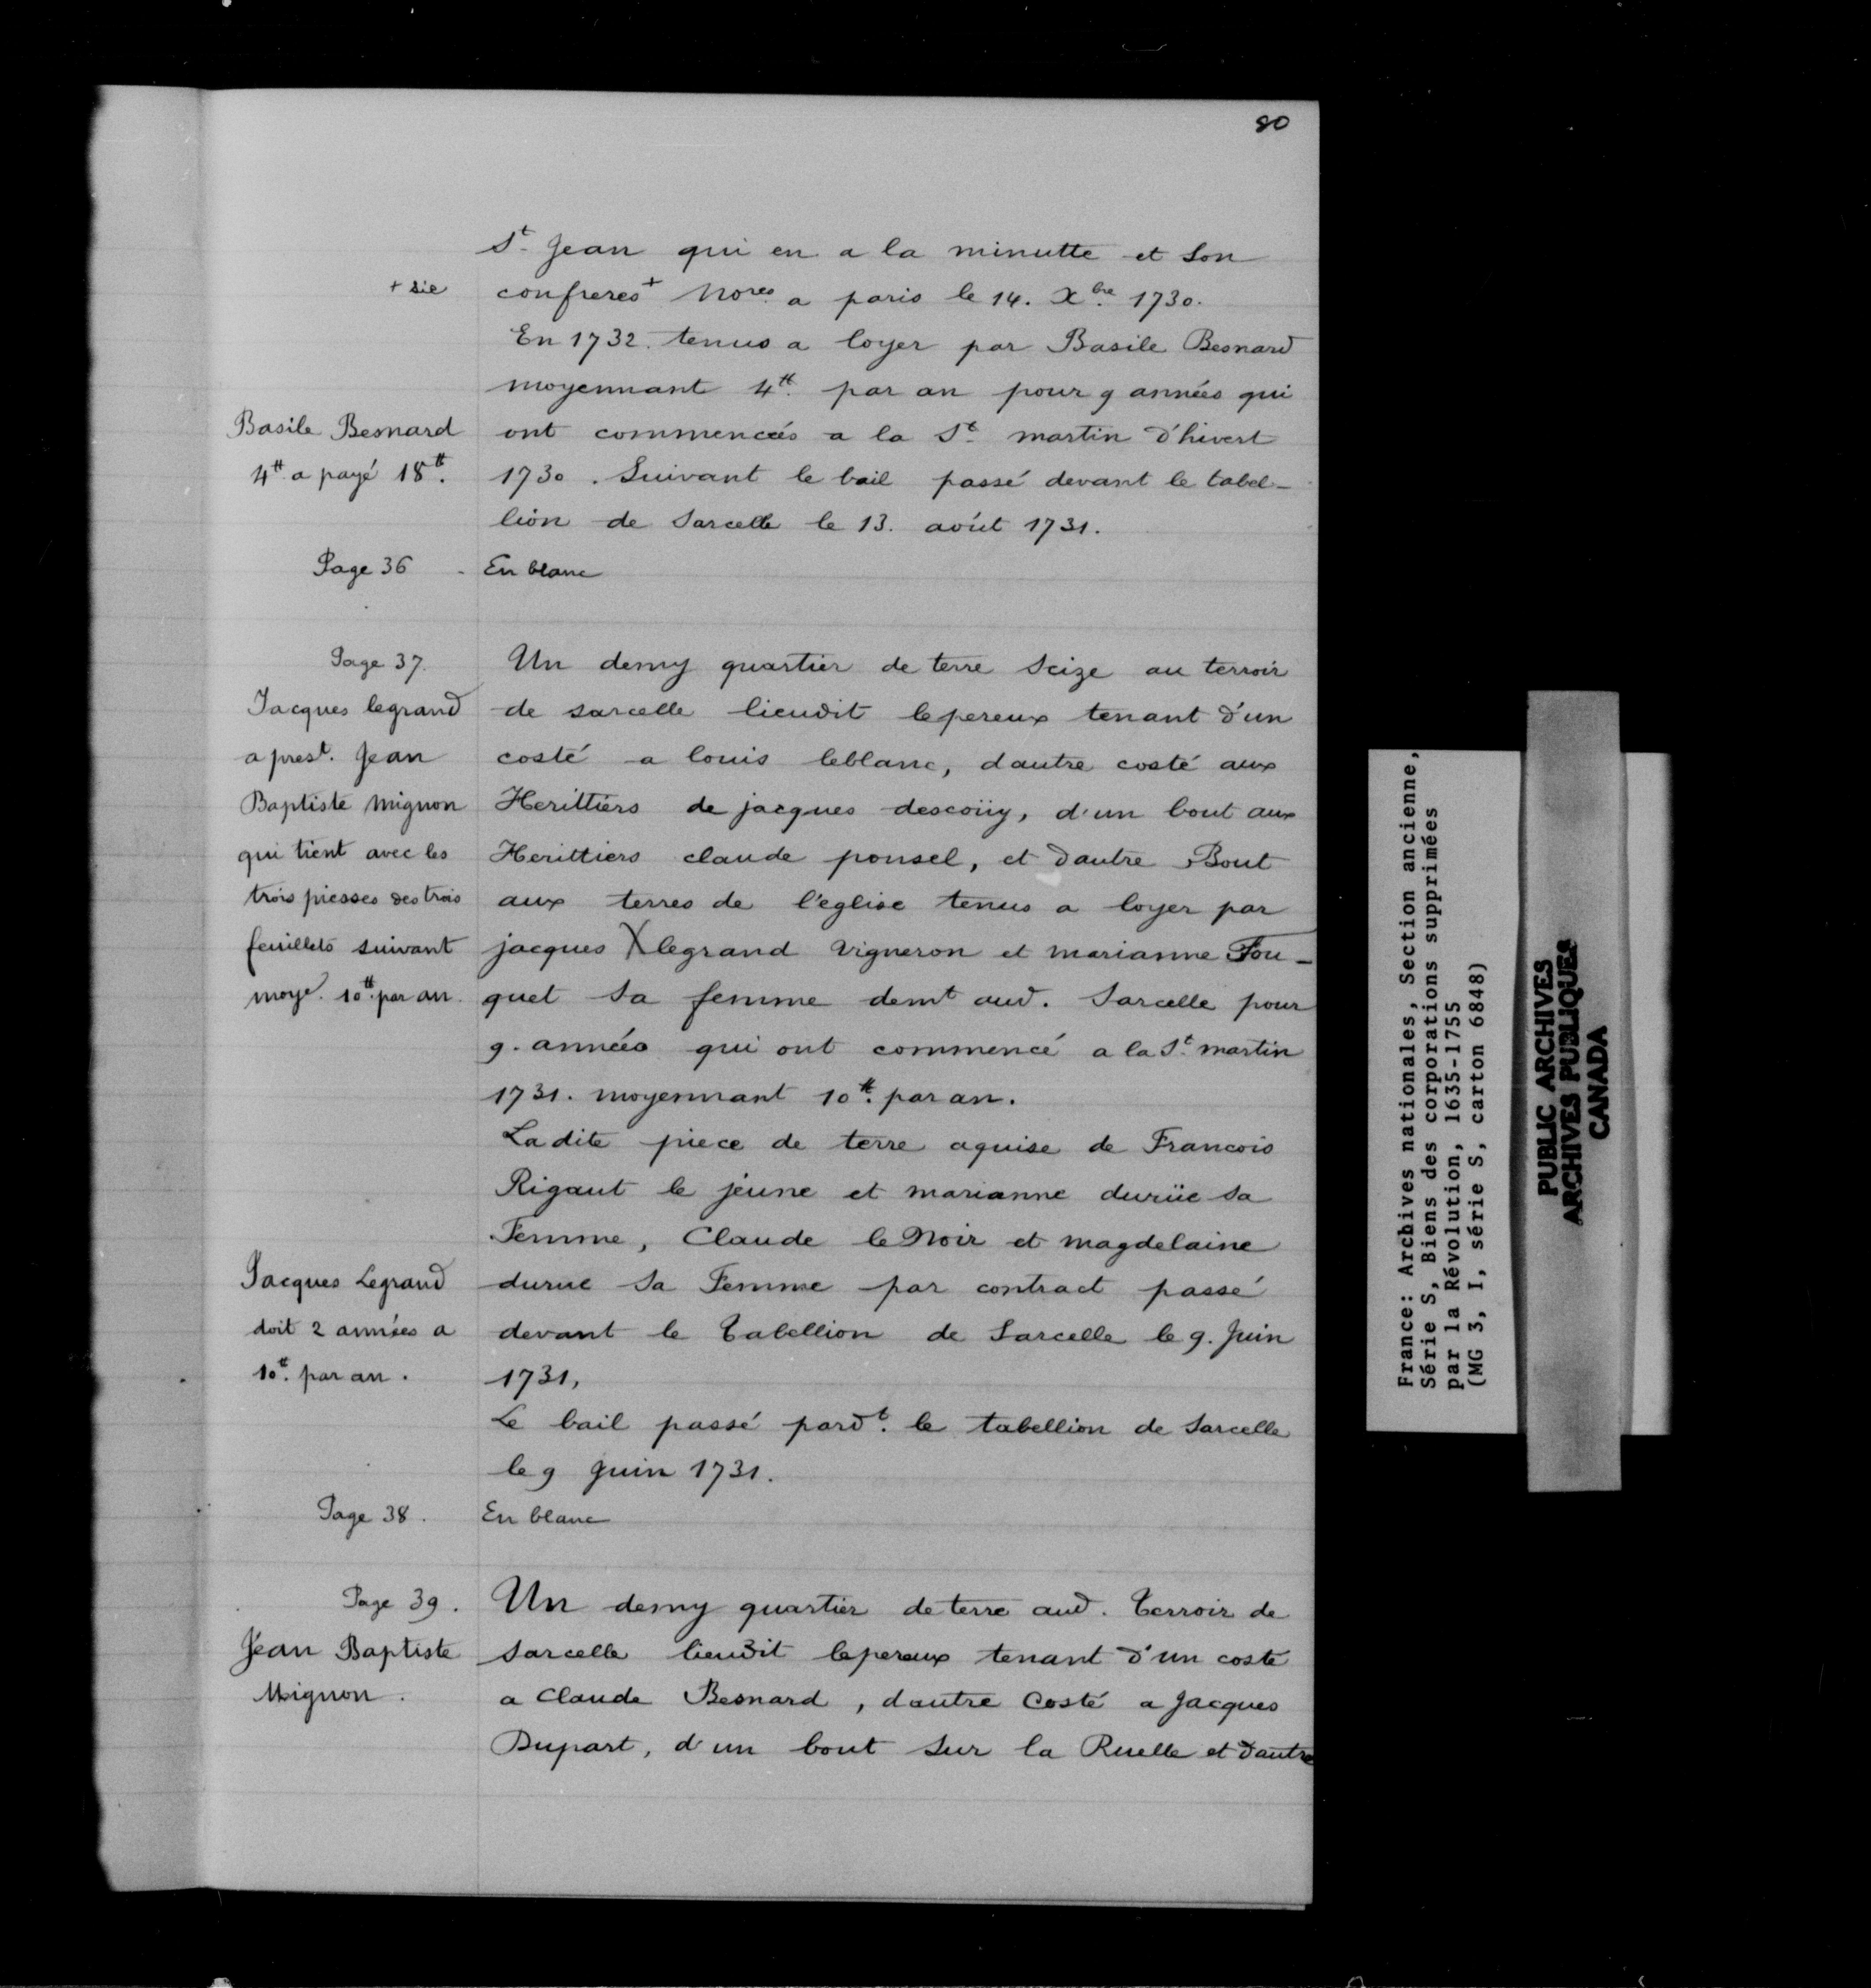 80
St Jean qui en a la minutte et son
+ sic
confreres + Nores a paris le 14. Xbre 1730.
En 1732. tenus a loyer par Basile Besnard
moyennant 4tt. par an pour 9 années qui
Basile Besnard
4tt a payé 18tt.
ont commencées a la St. martin d'hivert
1730. Suivant le bail passé devant le tabel-
lion de Sarcelle le 13. août 1731.
Page 36 - En blanc
Page 37.
Jacques legrand
a prest. Jean
Baptiste Mignon
qui tient avec les
trois piesses des trois
feuillets suivant
moye. 10tt. par an.
Un demy quartier de terre seize au terroir
de sarcelle lieudit lepereux tenant d'un
costé a louis leblanc, dautre costé aux
Herittiers de jacques descoüy, d'un bout aux
Herittiers claude ponsel, et dautre Bout
aux terres de l'eglise tenus a loyer par
jacques X legrand Vigneron et marianne Fou-
quet sa femme demt aud. Sarcelle pour
9. années qui ont commencé a la St. martin
1731. moyennant 10tt. par an.
La dite piece de terre aquise de Francois
Rigaut le jeune et marianne durüe sa
Femme, Claude le Noir et magdelaine
Jacques Legrand
doit 2 années a
10tt. par an.
durue sa Femme par contract passé
devant le Tabellion de Sarcelle le 9. Juin
1731,
Le bail passé pardt. le tabellion de Sarcelle
le 9 Juin 1731.
Page 38. En blanc
Page 39.
Jean Baptiste
Mignon.
Un demy quartier de terre aud. Terroir de
Sarcelle lieudit lepereux tenant d'un costé
a Claude Besnard, dautre Costé a Jacques
Dupart, d'un bout sur la Ruelle et dautre
France: Archives nationales, Section ancienne,
Série S, Biens des corporations supprimées
par la Révolution, 1635-1755
(MG 3, I, série S, carton 6848)
PUBLIC ARCHIVES
ARCHIVES PUBLIQUES
CANADA